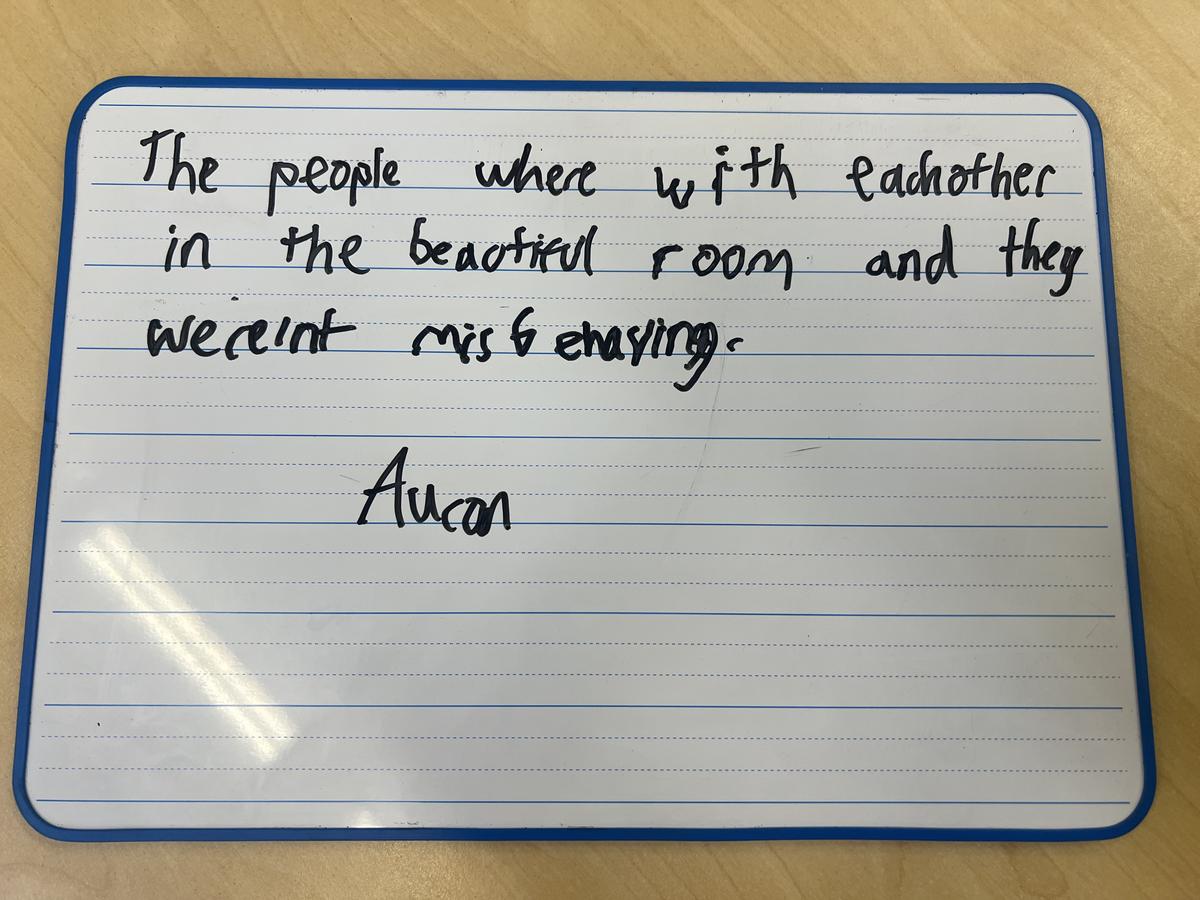 The people where with eachother
in the beautiful room and they
were'nt misbehaving.
Aucon